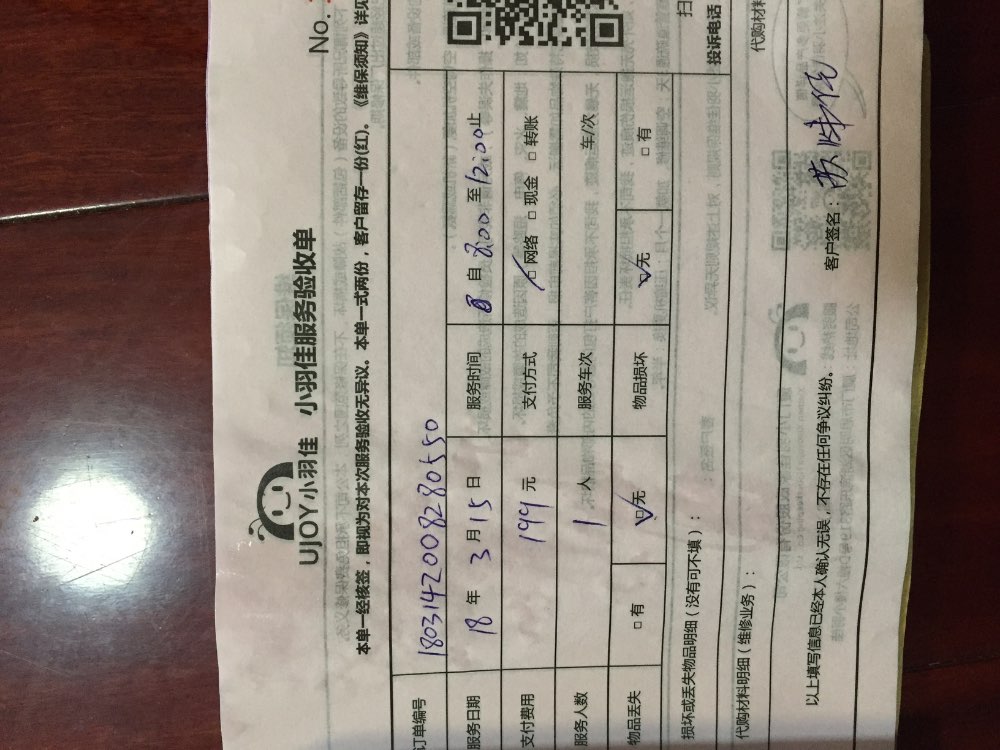 No.
UJOY小羽佳 小羽佳服务验收单
本单一经核签，即视为对本次服务验收无异议。本单一式两份，客户留存一份(红)。《维保须知》详见
订单编号 1803142008280550
服务日期 18 年 3 月 15 日 服务时间 自 8:00 至 12:00 止
支付费用 199 元 支付方式 ☑ 网络 □ 现金 □ 转账
服务人数 1 人 服务车次 车/次
物品丢失 □ 有 ☑ 无 物品损坏 ☑ 无 □ 有
损坏或丢失物品明细（没有可不填）： 投诉电话
代购材料明细（维修业务）： 代购材料
以上填写信息已经本人确认无误，不存在任何争议纠纷。 客户签名：